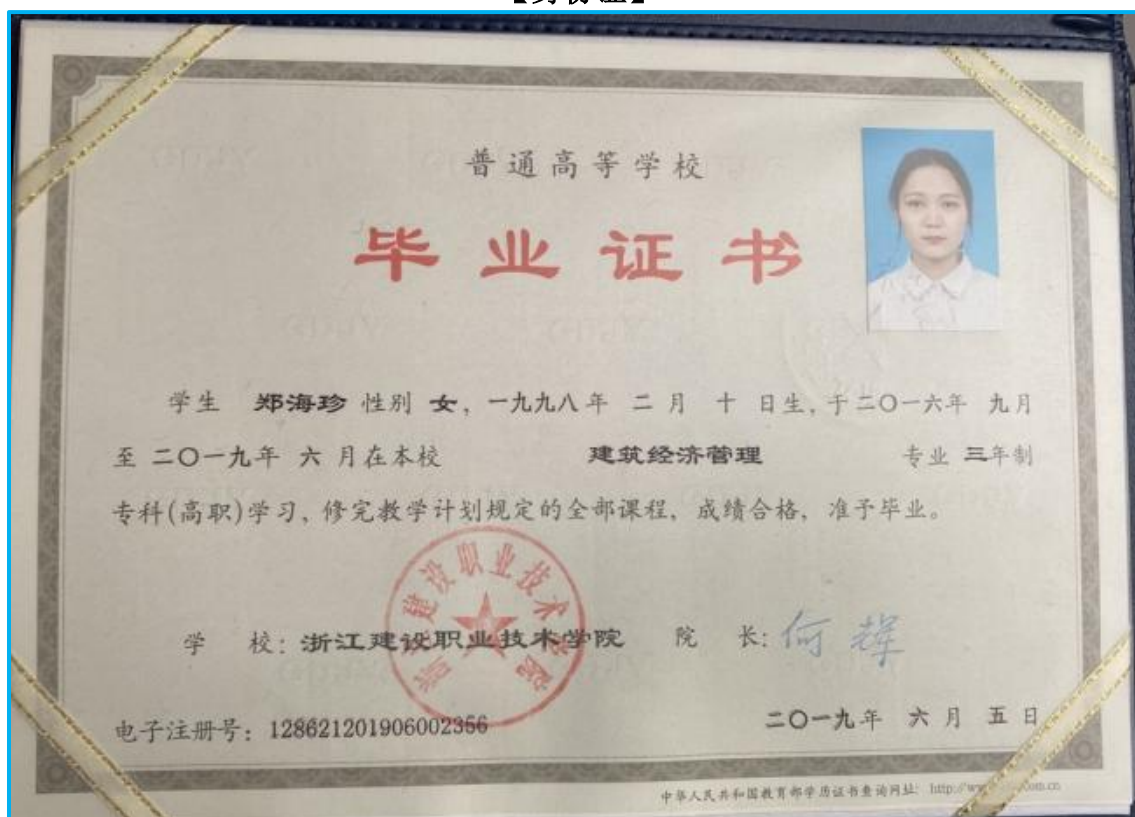 普通高等学校
毕业证书
学生 郑海珍 性别 女，一九九八年 二 月 十 日生，于二〇一六年 九月
至 二〇一九年 六 月在本校 建筑经济管理 专业 三年制
专科(高职)学习，修完教学计划规定的全部课程，成绩合格，准予毕业。
浙江建设职业技术学院
学 校：浙江建设职业技术学院 院 长：何辉
电子注册号：128621201906002356 二〇一九年 六 月 五 日
中华人民共和国教育部学历证书查询网址：http://www